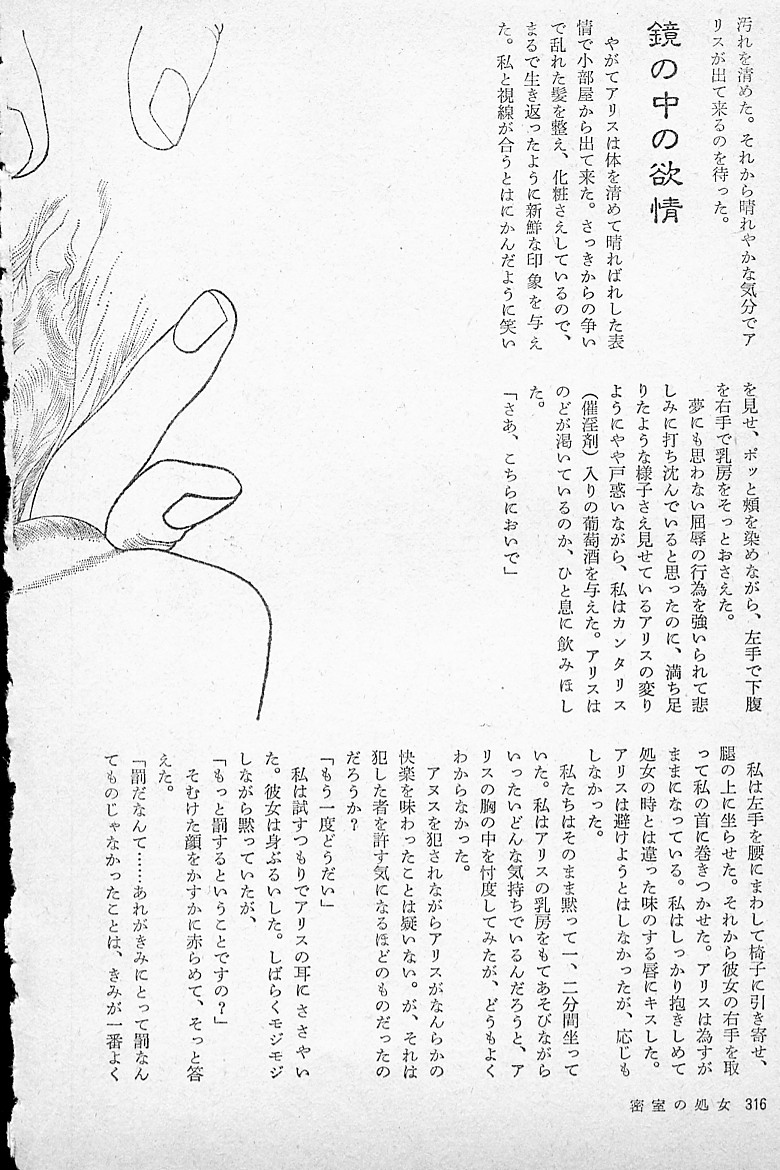 汚れを清めた。それから晴れやかな気分でア
リスが出て来るのを待った。
鏡の中の欲情
やがてアリスは体を清めて晴ればれした表
情で小部屋から出て来た。さっきからの争い
で乱れた髪を整え、化粧さえしているので、
まるで生き返ったように新鮮な印象を与え
た。私と視線が合うとはにかんだように笑い
を見せ、ポッと頬を染めながら、左手で下腹
を右手で乳房をそっとおさえた。
夢にも思わない屈辱の行為を強いられて悲
しみに打ち沈んでいると思ったのに、満ち足
りたような様子さえ見せているアリスの変り
ようにやや戸惑いながら、私はカンタリス
(催淫剤)入りの葡萄酒を与えた。アリスは
のどが渇いているのか、ひと息に飲みほし
た。
「さあ、こちらにおいで」
私は左手を腰にまわして椅子に引き寄せ、
腿の上に坐らせた。それから彼女の右手を取
って私の首に巻きつかせた。アリスは為すが
ままになっている。私はしっかり抱きしめて
処女の時とは違った味のする唇にキスした。
アリスは避けようとはしなかったが、応じも
しなかった。
私たちはそのまま黙って一、二分間坐って
いた。私はアリスの乳房をもてあそびながら
いったいどんな気持ちでいるんだろうと、ア
リスの胸の中を忖度してみたが、どうもよく
わからなかった。
アヌスを犯されながらアリスがなんらかの
快楽を味わったことは疑いない。が、それは
犯した者を許す気になるほどのものだったの
だろうか?
「もう一度どうだい」
私は試すつもりでアリスの耳にささやい
た。彼女は身ぶるいした。しばらくモジモジ
しながら黙っていたが、
「もっと罰するということですの?」
そむけた顔をかすかに赤らめて、そっと答
えた。
「罰だなんて……あれがきみにとって罰なん
てものじゃなかったことは、きみが一番よく
密室の処女 316